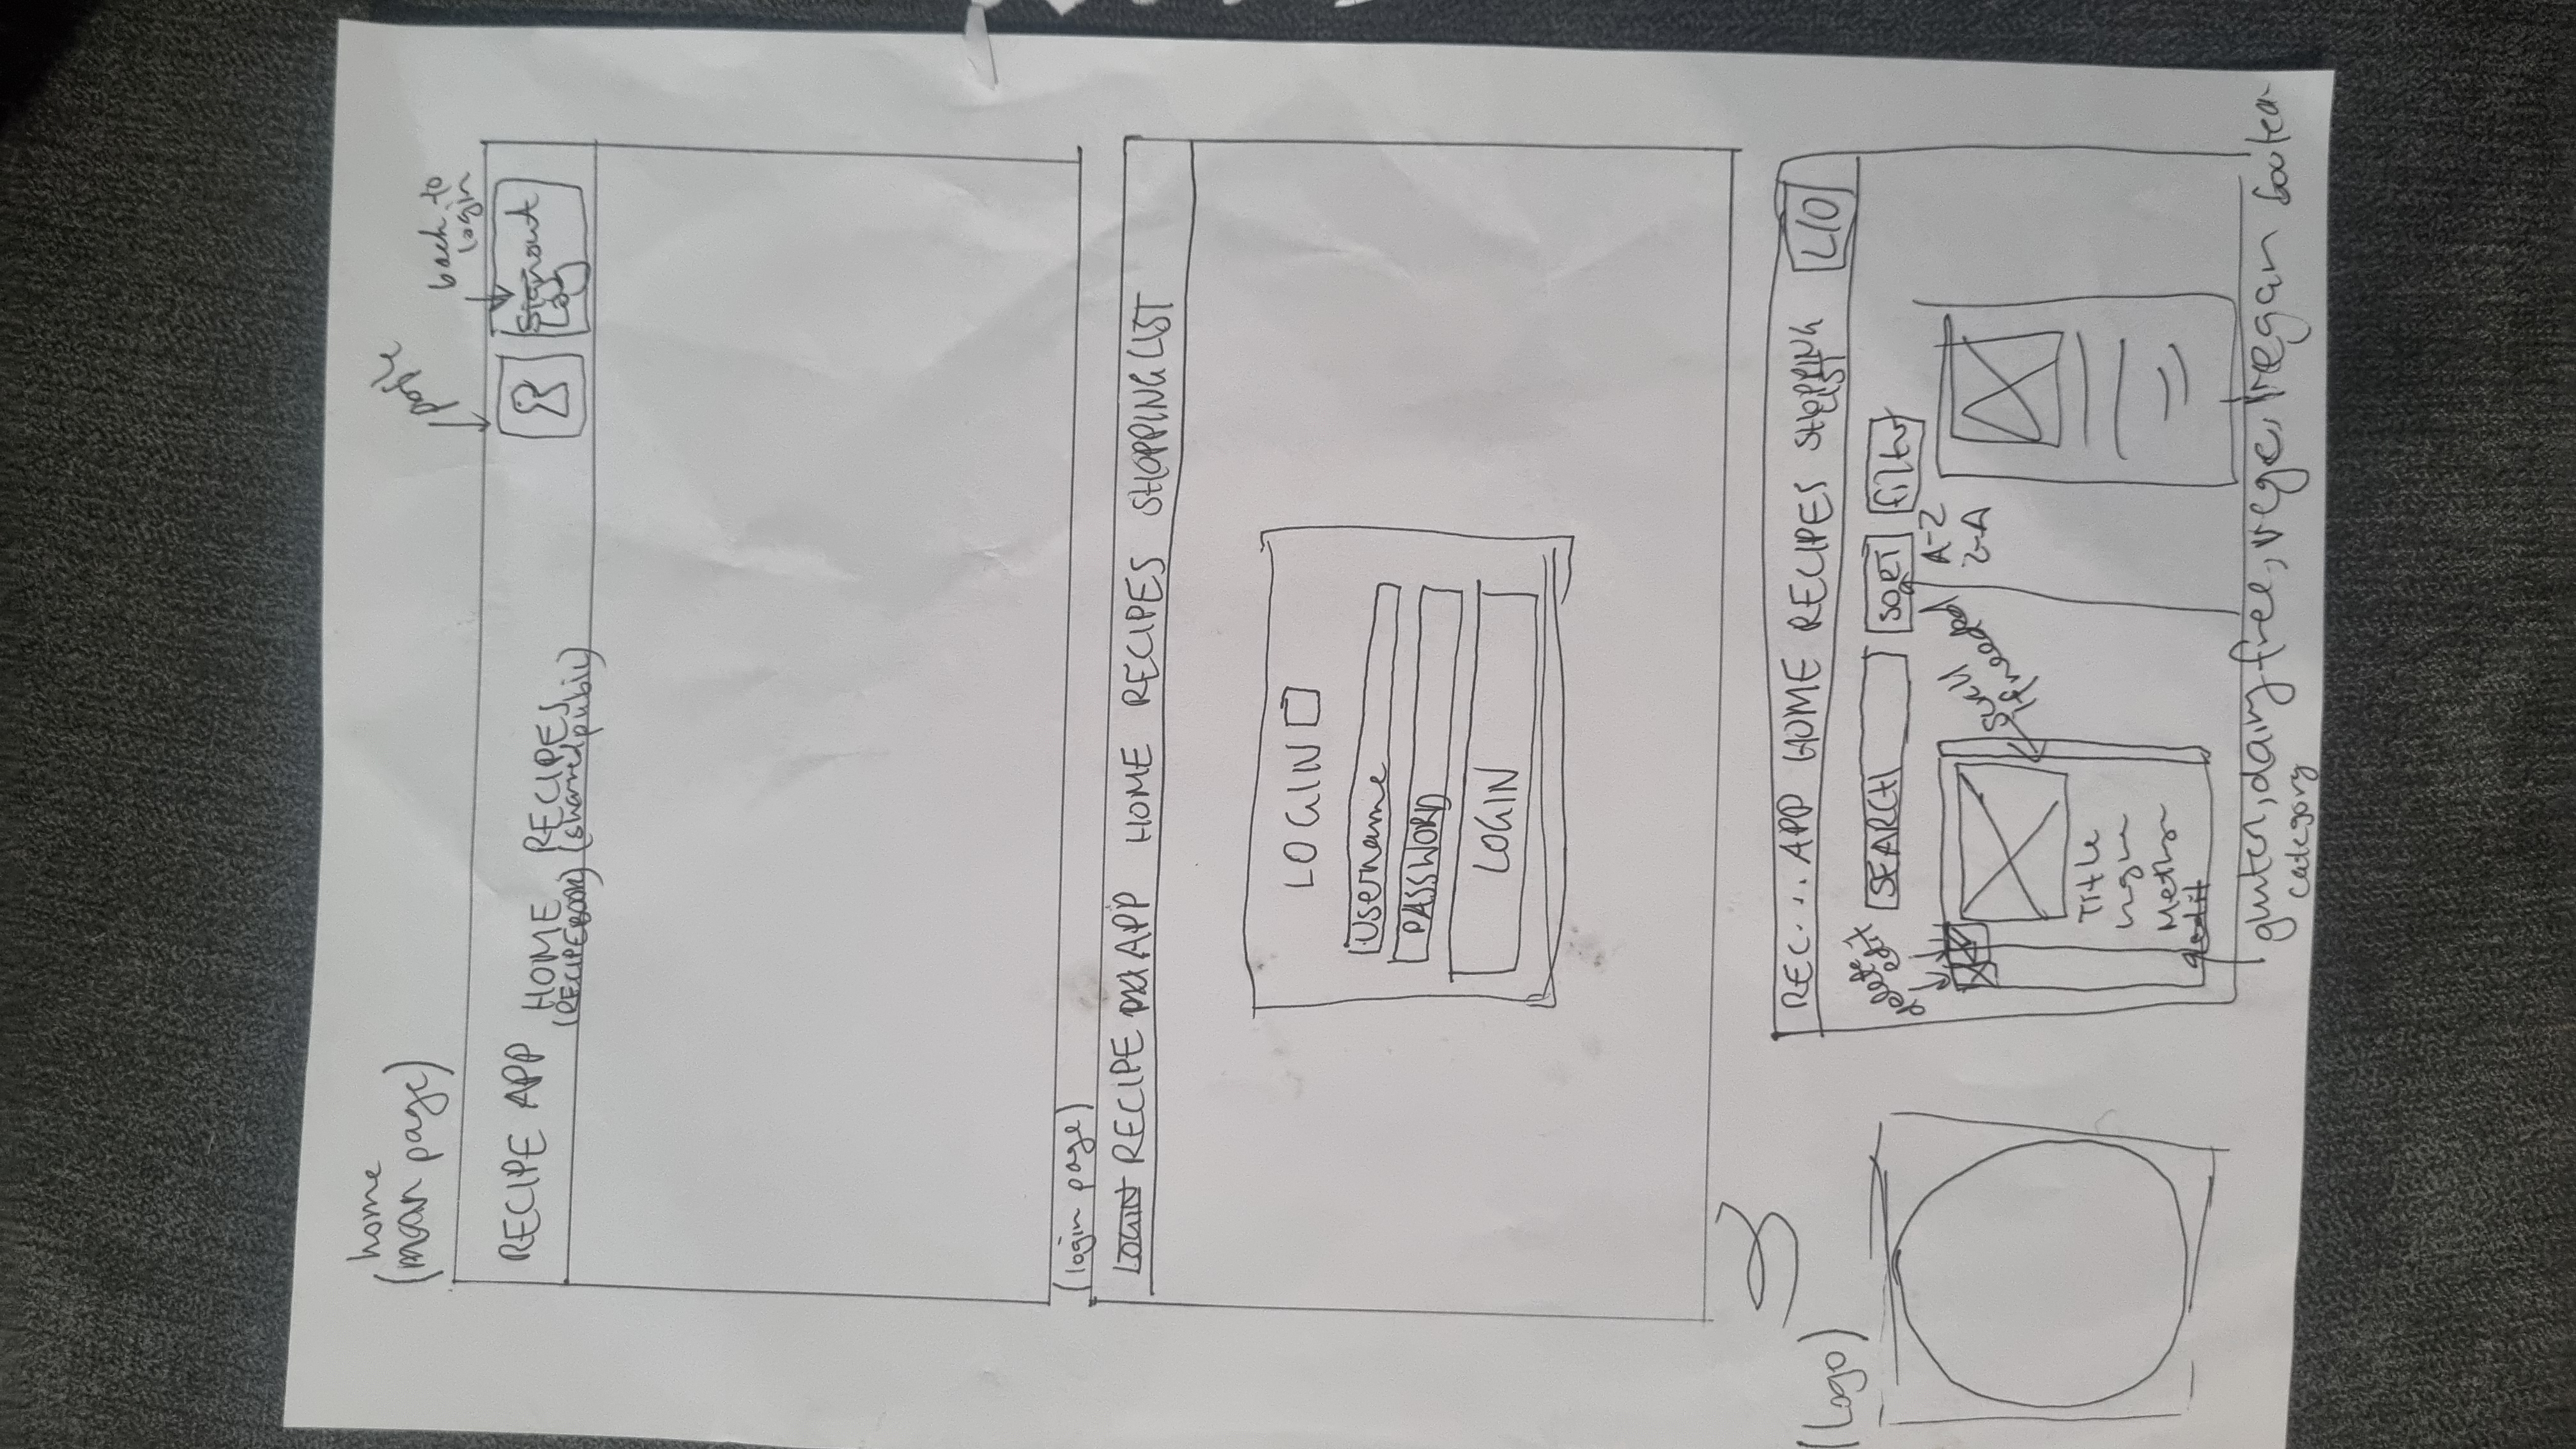 home
(main page)
profile
back to
login
RECIPE APP HOME RECIPES
(RECIPEBOOK) (shared public)
Signout
Log
(login page)
LOGIN RECIPE APP HOME RECIPES SHOPPING LIST
LOGIN
Username
PASSWORD
LOGIN
(Logo)
REC... APP HOME RECIPES SHOPPING
LIST
L/O
delete
edit
SEARCH
SORT
filter
A-Z
Z-A
scroll
if needed
Title
Method
edit
gluten, dairy free, vege, vegan boolean
category